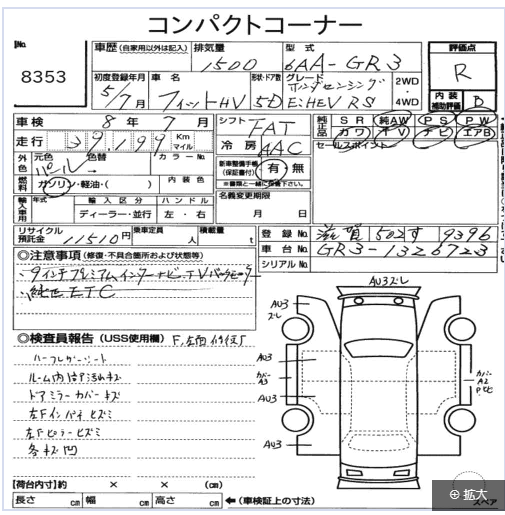 コンパクトコーナー
No.
8353
車歴 (自家用以外は記入)
排気量
1500
型式
6AA-GR3
評価点
R
初度登録年月
5/7月
車名
フィットHV
形状・ドア数
5D
グレード
ホンダセンシング
E:HEV RS
2WD
4WD
内装補助評価
B
車検 8年 7月
シフト
FAT
純正品
SR 純AW PS PW
カワ TV ナビ エアB
走行 39,199 Km マイル
冷房
AAC
セールスポイント
外色
元色
パール
色替
カラーNo.
新車整備手帳(保証書付) 有・無
※書類と一緒に後検下さい。
燃料
ガソリン・軽油・( )
内装色
輸入車用
年式
輸入区分
ディーラー・並行
ハンドル
左・右
名義変更期限
月 日
リサイクル預託金 11510円
乗車定員 人
積載量 t
登録No. 滋賀 502す 9396
車台No. GR3-1326723
シリアルNo.
◎注意事項 (修復・不具合箇所および状態等)
・9インチプレミアムインターナビ、TV
・純正ETC
◎検査員報告 (USS使用欄)
ハーフレザーシート
ルーム内ハゲ汚れキズ
ドアミラーカバーキズ
左Fインパネヒズミ
左Fピラーヒズミ
各キズ凹
AU3ズレ
AU3
ズレ
AU3
カバーA3
AU3
AU3
カバー
A2
【荷台内寸】約 × × (cm)
長さ cm 幅 cm 高さ cm
←(車検証上の寸法)
スペア
拡大